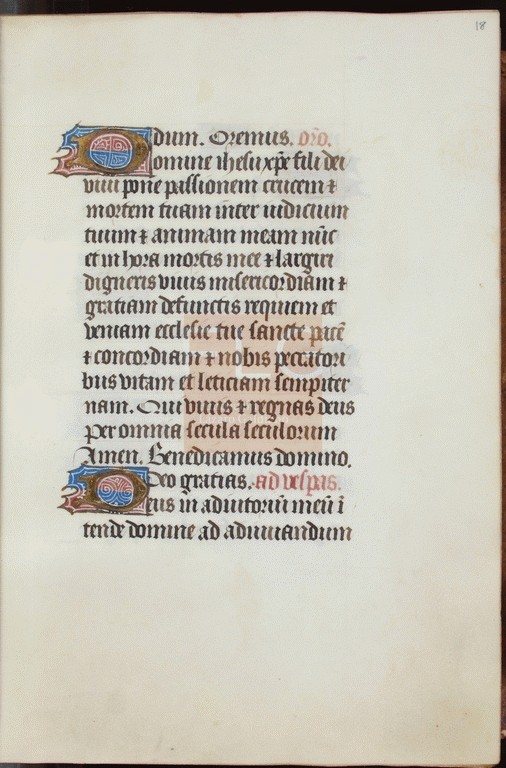 18
dum. Oremus. oro̅.
Domine ihesu xp̅e fili dei
viui pone passionem crucem ⁊
mortem tuam inter iudicium
tuum ⁊ animam meam nu̅c
et in hora mortis mee ⁊ largiri
digneris viuis misericordiam ⁊
gratiam defunctis requiem et
veniam ecclesie tue sancte pace̅
⁊ concordiam ⁊ nobis peccatori
bus vitam et leticiam sempiter
nam. Qui viuis ⁊ regnas deus
per omnia secula seculorum
Amen. Benedicamus domino.
Deo gratias. ad vesp̅as.
Deus in adiutoriu̅ meu̅ i̅
tende domine ad adiuuandum